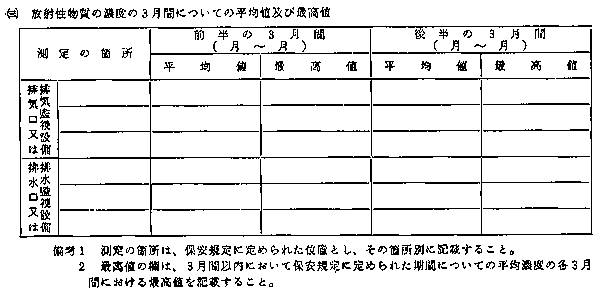 ㈢ 放射性物質の濃度の3月間についての平均値及び最高値
測定の箇所
前半の3月間
（月～月）
後半の3月間
（月～月）
平均値
最高値
平均値
最高値
排気口又は
排気監視設備
排水口又は
排水監視設備
備考1 測定の箇所は、保安規定に定められた位置とし、その箇所別に記載すること。
2 最高値の欄は、3月間以内において保安規定に定められた期間についての平均濃度の各3月
間における最高値を記載すること。